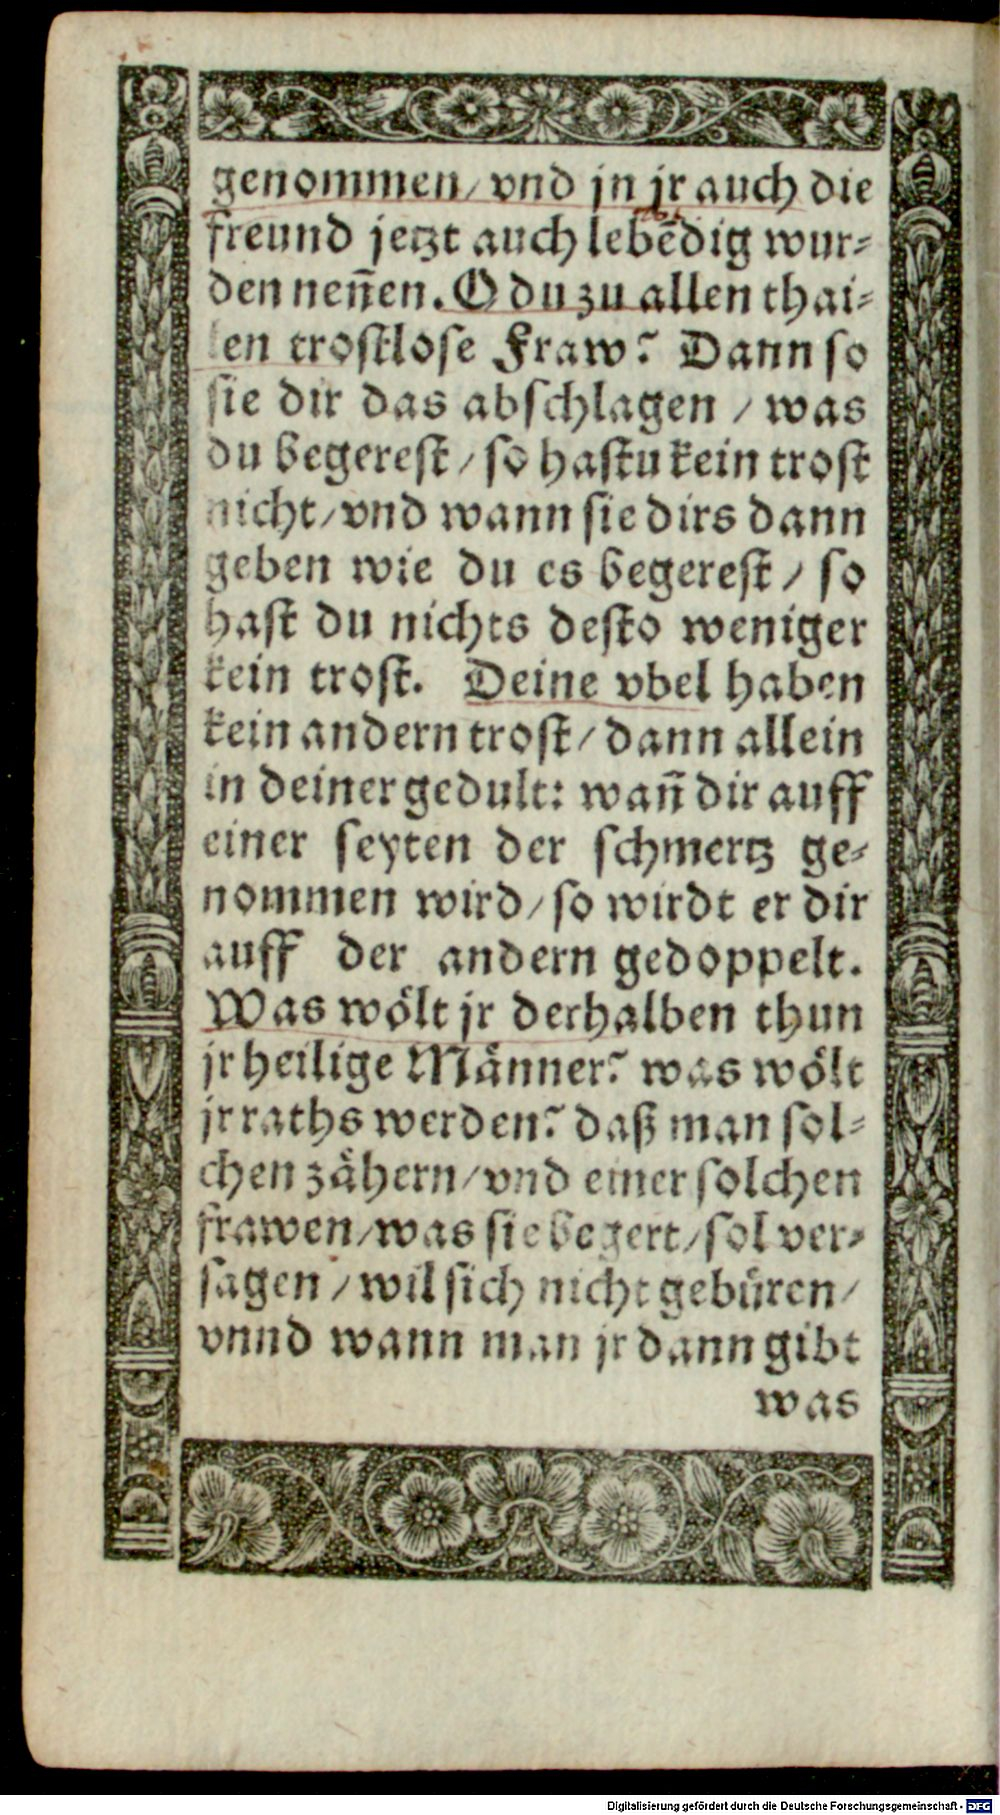 genommen/ vnd jn jr auch die
freund jetzt auch lebēdig wur⸗
den neñen. O du zu allen thai⸗
len trostlose Fraw? Dann so
sie dir das abschlagen / was
du begerest / so hastu kein trost
nicht/ vnd wann sie dirs dann
geben wie du es begerest / so
hast du nichts desto weniger
kein trost. Deine vbel haben
kein andern trost / dann allein
in deiner gedult: wañ dir auff
einer seyten der schmertz ge⸗
nommen wird / so wirdt er dir
auff der andern gedoppelt.
Was wölt jr derhalben thun
jr heilige Männer? was wölt
jr raths werden? daß man sol⸗
chen zähern/ vnd einer solchen
frawen/ was sie begert/ sol ver⸗
sagen / wil sich nicht gebüren/
vnnd wann man jr dann gibt
was
Digitalisierung gefördert durch die Deutsche Forschungsgemeinschaft - DFG